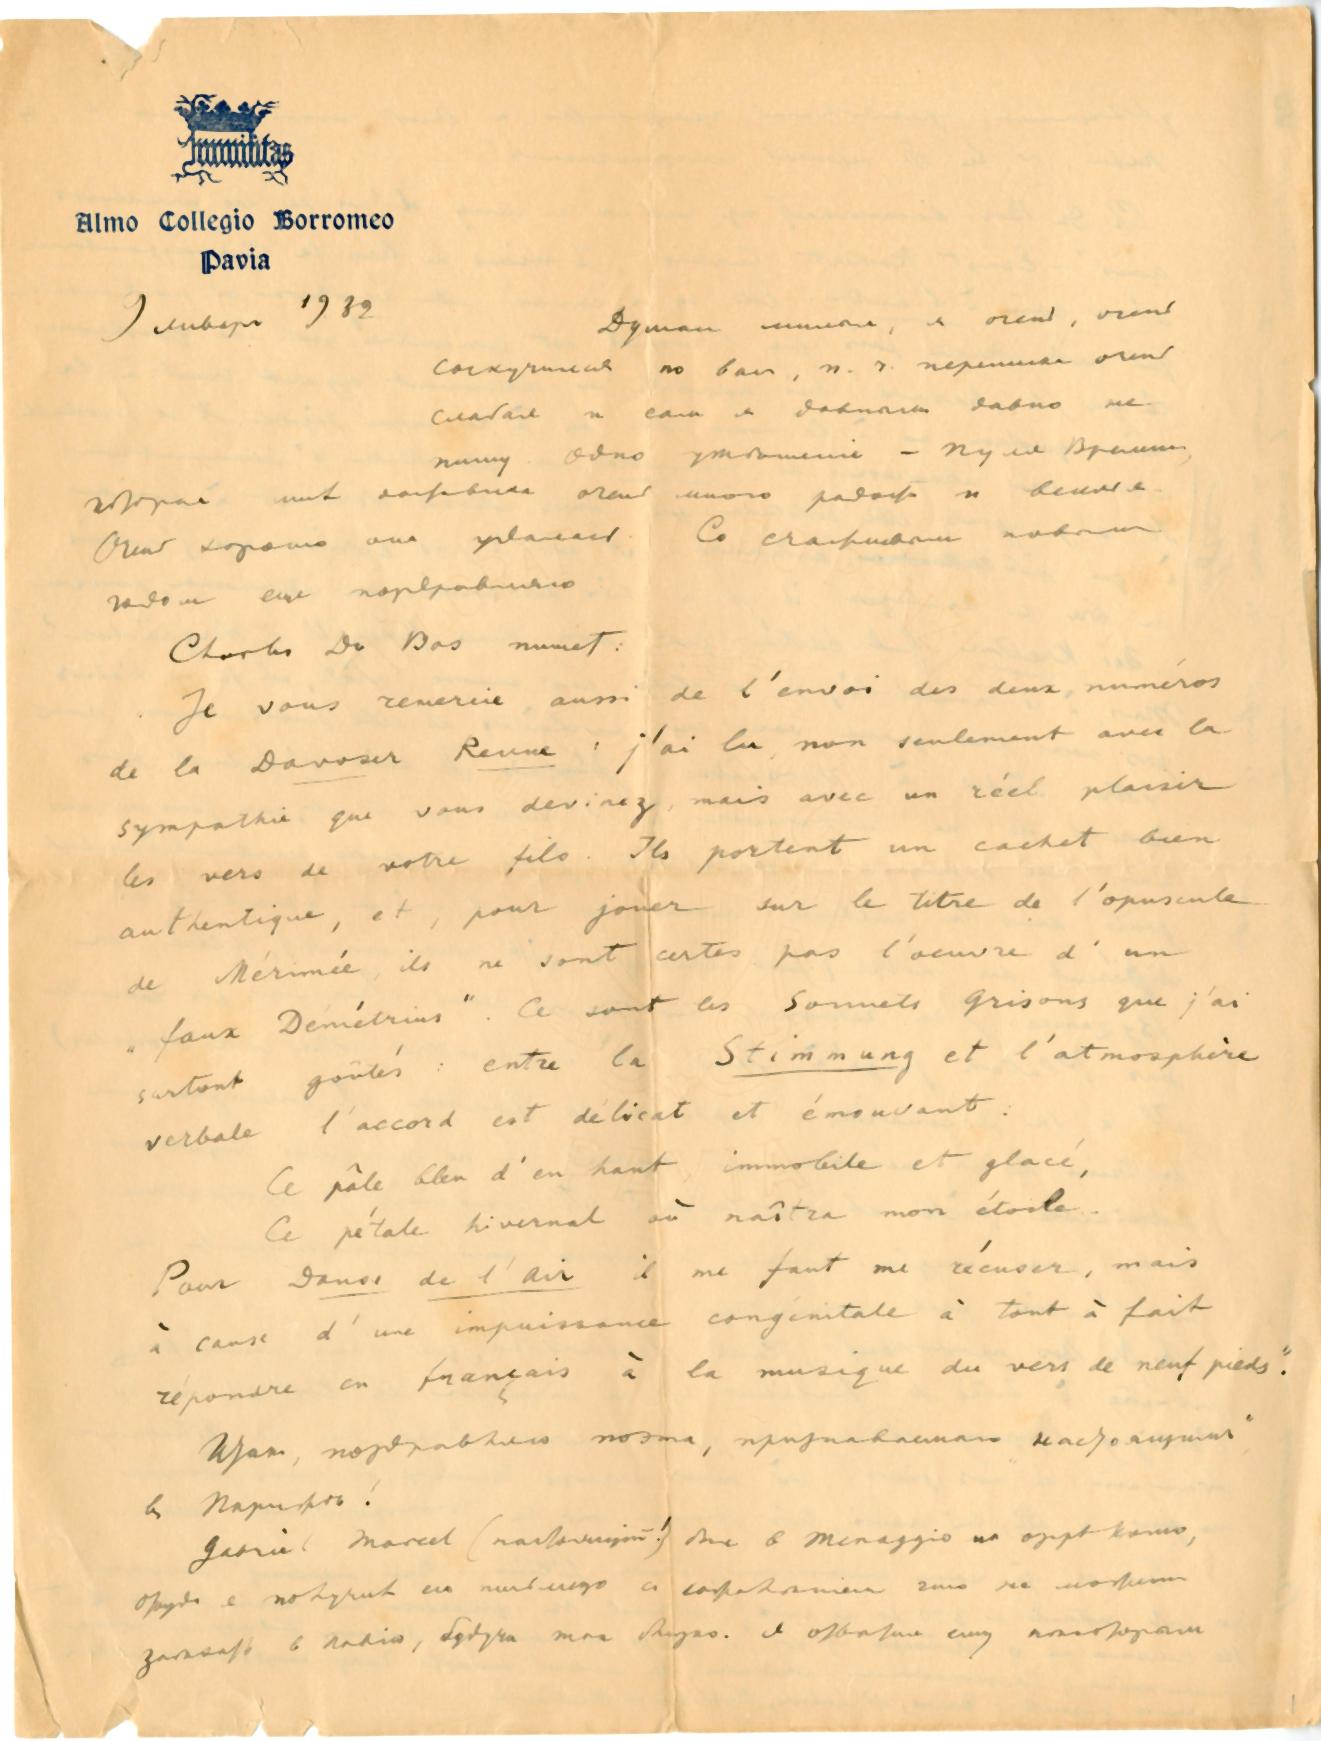 Humilitas
Almo Collegio Borromeo
Pavia
9 января 1932
Думаю много, я очень, очень
соскучился по вам, п. ч. переписка очень
слабая и сам я давным давно не
пишу. Одно утешение –
которая мне доставила очень много радости и веселья.
Очень хорошо она удалась. Со счастливым новым
годом еще поздравляю
Charles Du Bos пишет:
Je vous remercie aussi de l'envoi des deux numéros
de la Davoser Revue : j'ai lu, non seulement avec la
sympathie que vous devinez, mais avec un réel plaisir
les vers de votre fils. Ils portent un cachet bien
authentique, et, pour jouer sur le titre de l'opuscule
de Mérimée, ils ne sont certes pas l'oeuvre d'un
"faux Démétrius". Ce sont les Sonnets Grisons que j'ai
surtout goûtés : entre la Stimmung et l'atmosphère
verbale l'accord est délicat et émouvant :
Ce pâle bleu d'en haut, immobile et glacé,
Ce pétale hivernal où naîtra mon étoile.
Pour Danse de l'Air il me faut me récuser, mais
à cause d'une impuissance congénitale à tout à fait
répondre en français à la musique du vers de neuf pieds".
Итак, поздравляю поэта, признаваемого "настоящим"
в Париже!
Gabriel Marcel (настоящий!) был в Menaggio на озере Комо,
откуда я получил его письмецо с сожалением что не может
заехать в Павию, будучи так близко. Я ответил ему